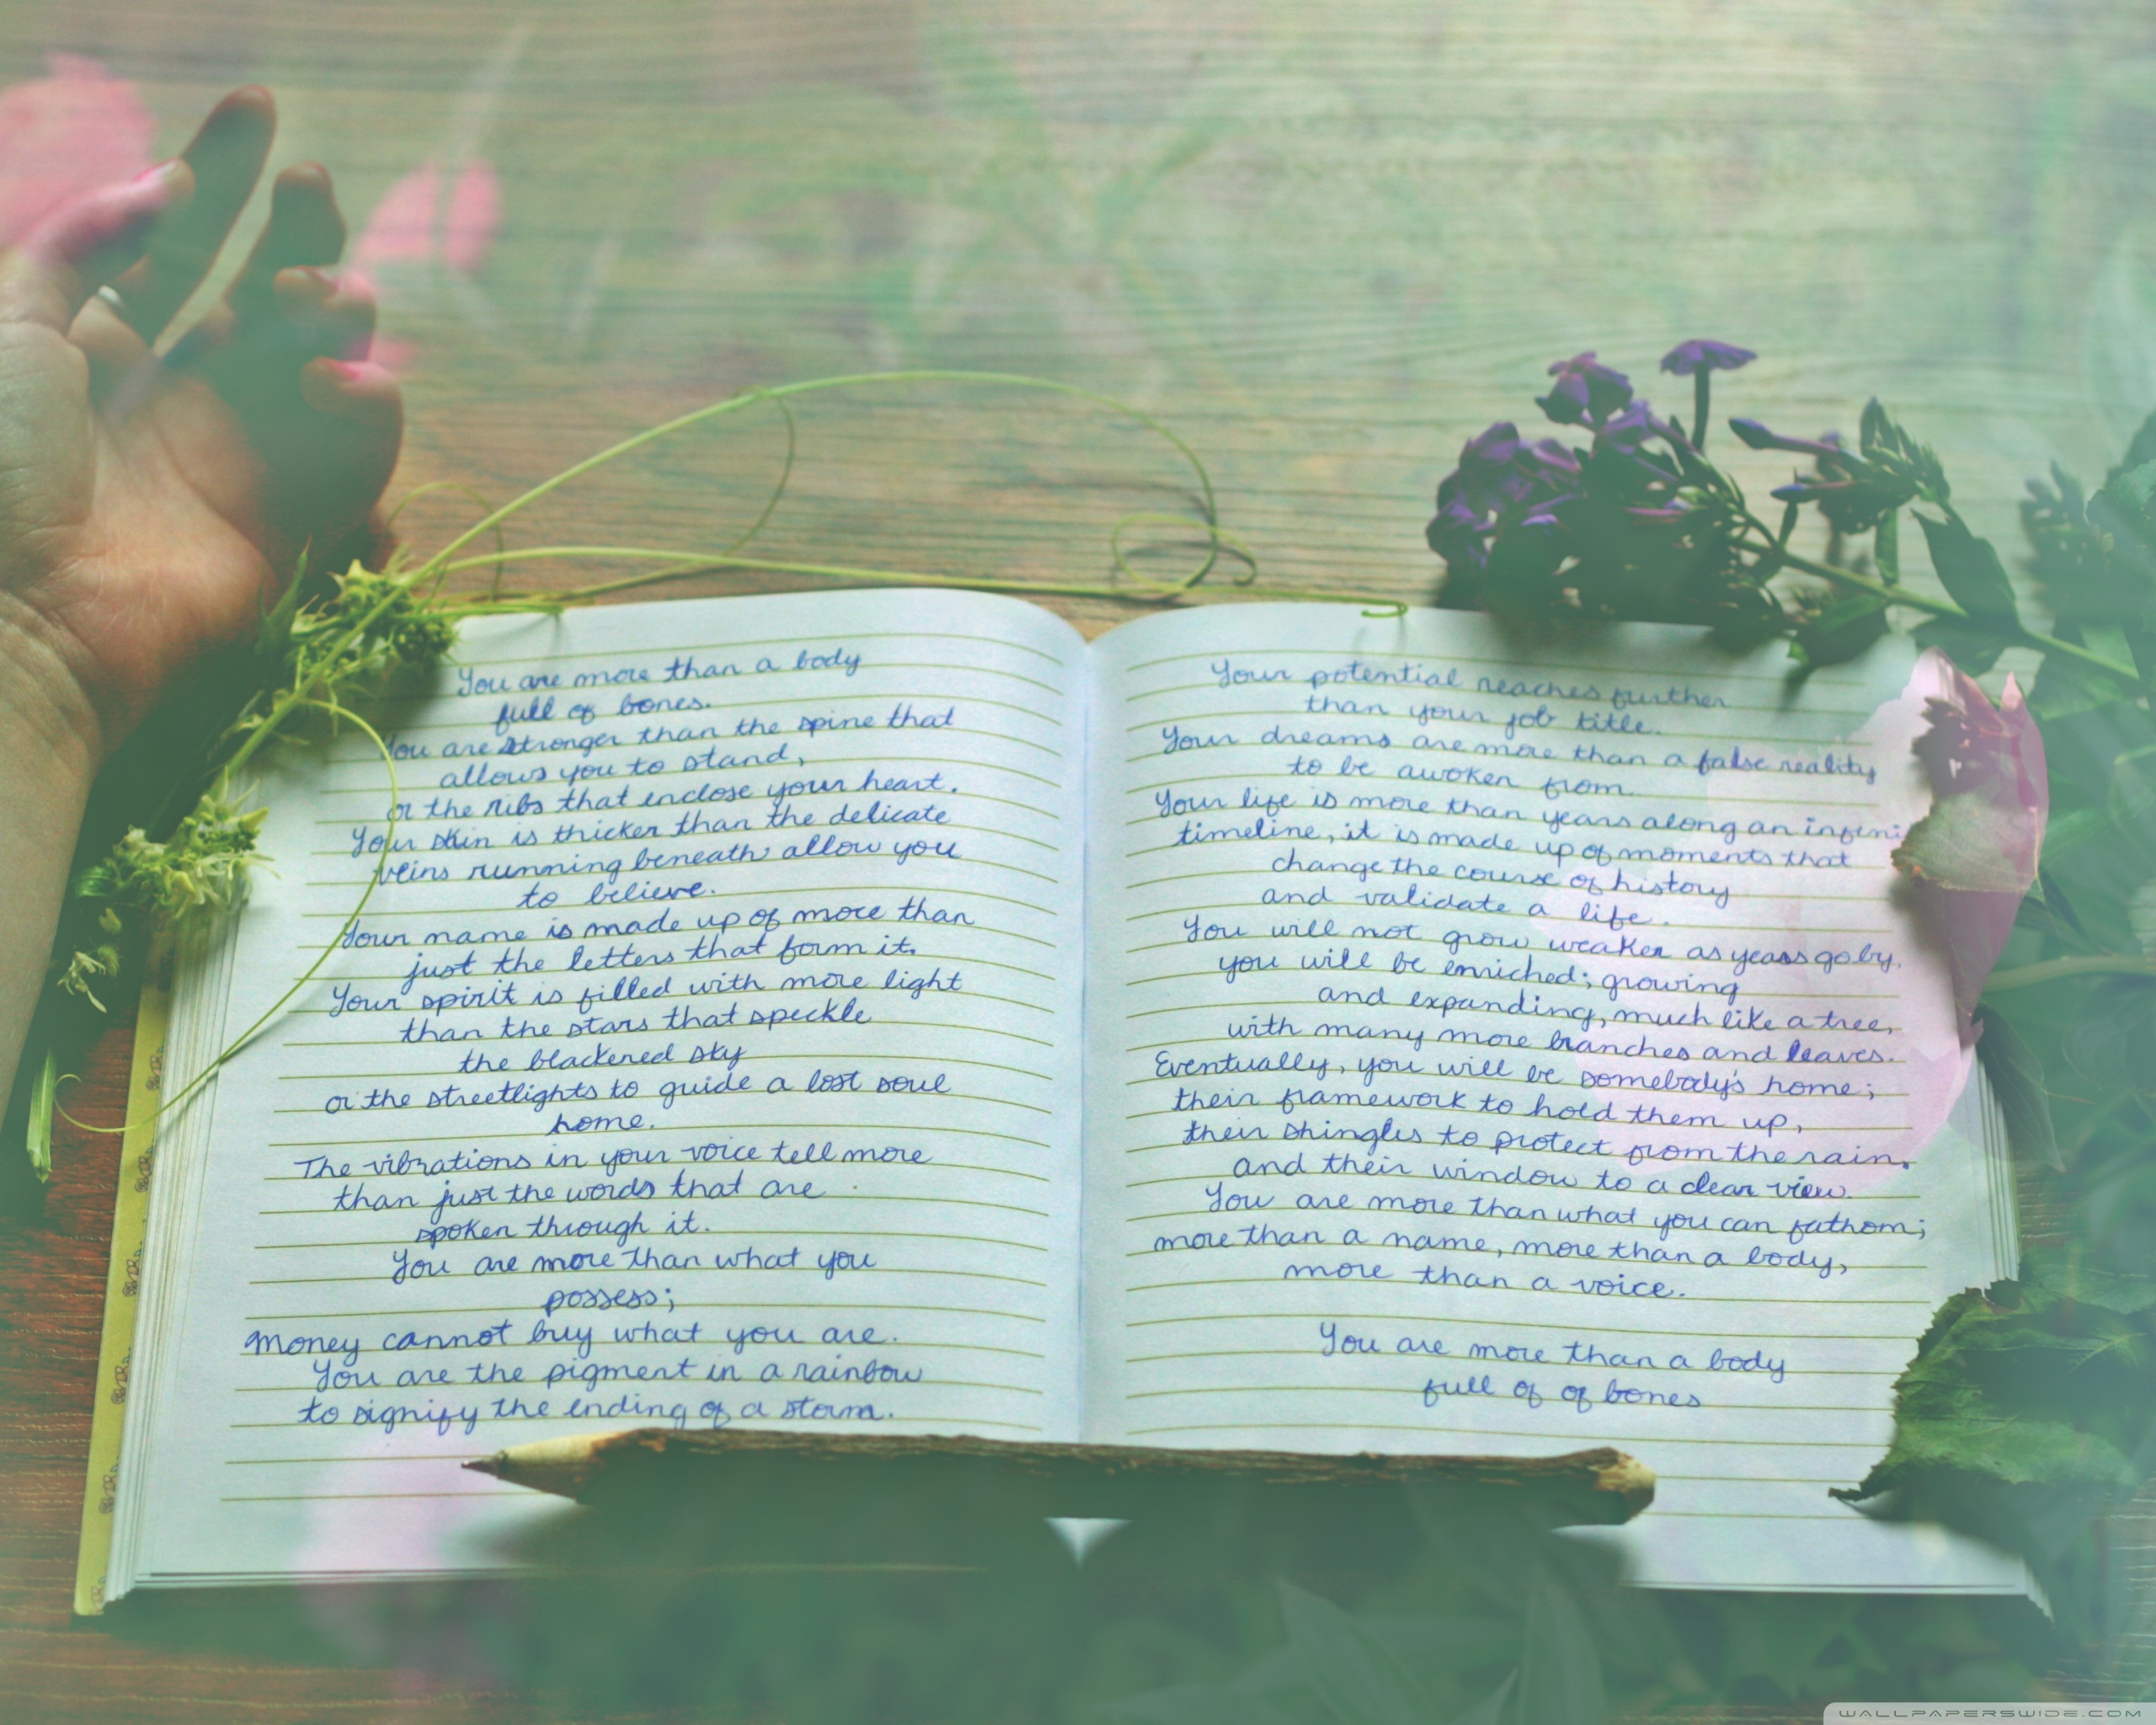 You are more than a body
full of bones.
You are stronger than the spine that
allows you to stand,
or the ribs that enclose your heart.
Your skin is thicker than the delicate
veins running beneath allow you
to believe.
Your name is made up of more than
just the letters that form it.
Your spirit is filled with more light
than the stars that speckle
the blackened sky
or the streetlights to guide a lost soul
home.
The vibrations in your voice tell more
than just the words that are
spoken through it.
You are more than what you
possess;
Money cannot buy what you are.
You are the pigment in a rainbow
to signify the ending of a storm.
Your potential reaches further
than your job title.
Your dreams are more than a false reality
to be awoken from.
Your life is more than years along an infini
timeline, it is made up of moments that
change the course of history
and validate a life.
You will not grow weaker as years go by,
you will be enriched; growing
and expanding, much like a tree,
with many more branches and leaves.
Eventually, you will be somebody's home;
their framework to hold them up,
their shingles to protect from the rain.
and their window to a clear view.
You are more than what you can fathom;
more than a name, more than a body,
more than a voice.
You are more than a body
full of of bones
WALLPAPERSWIDE.COM